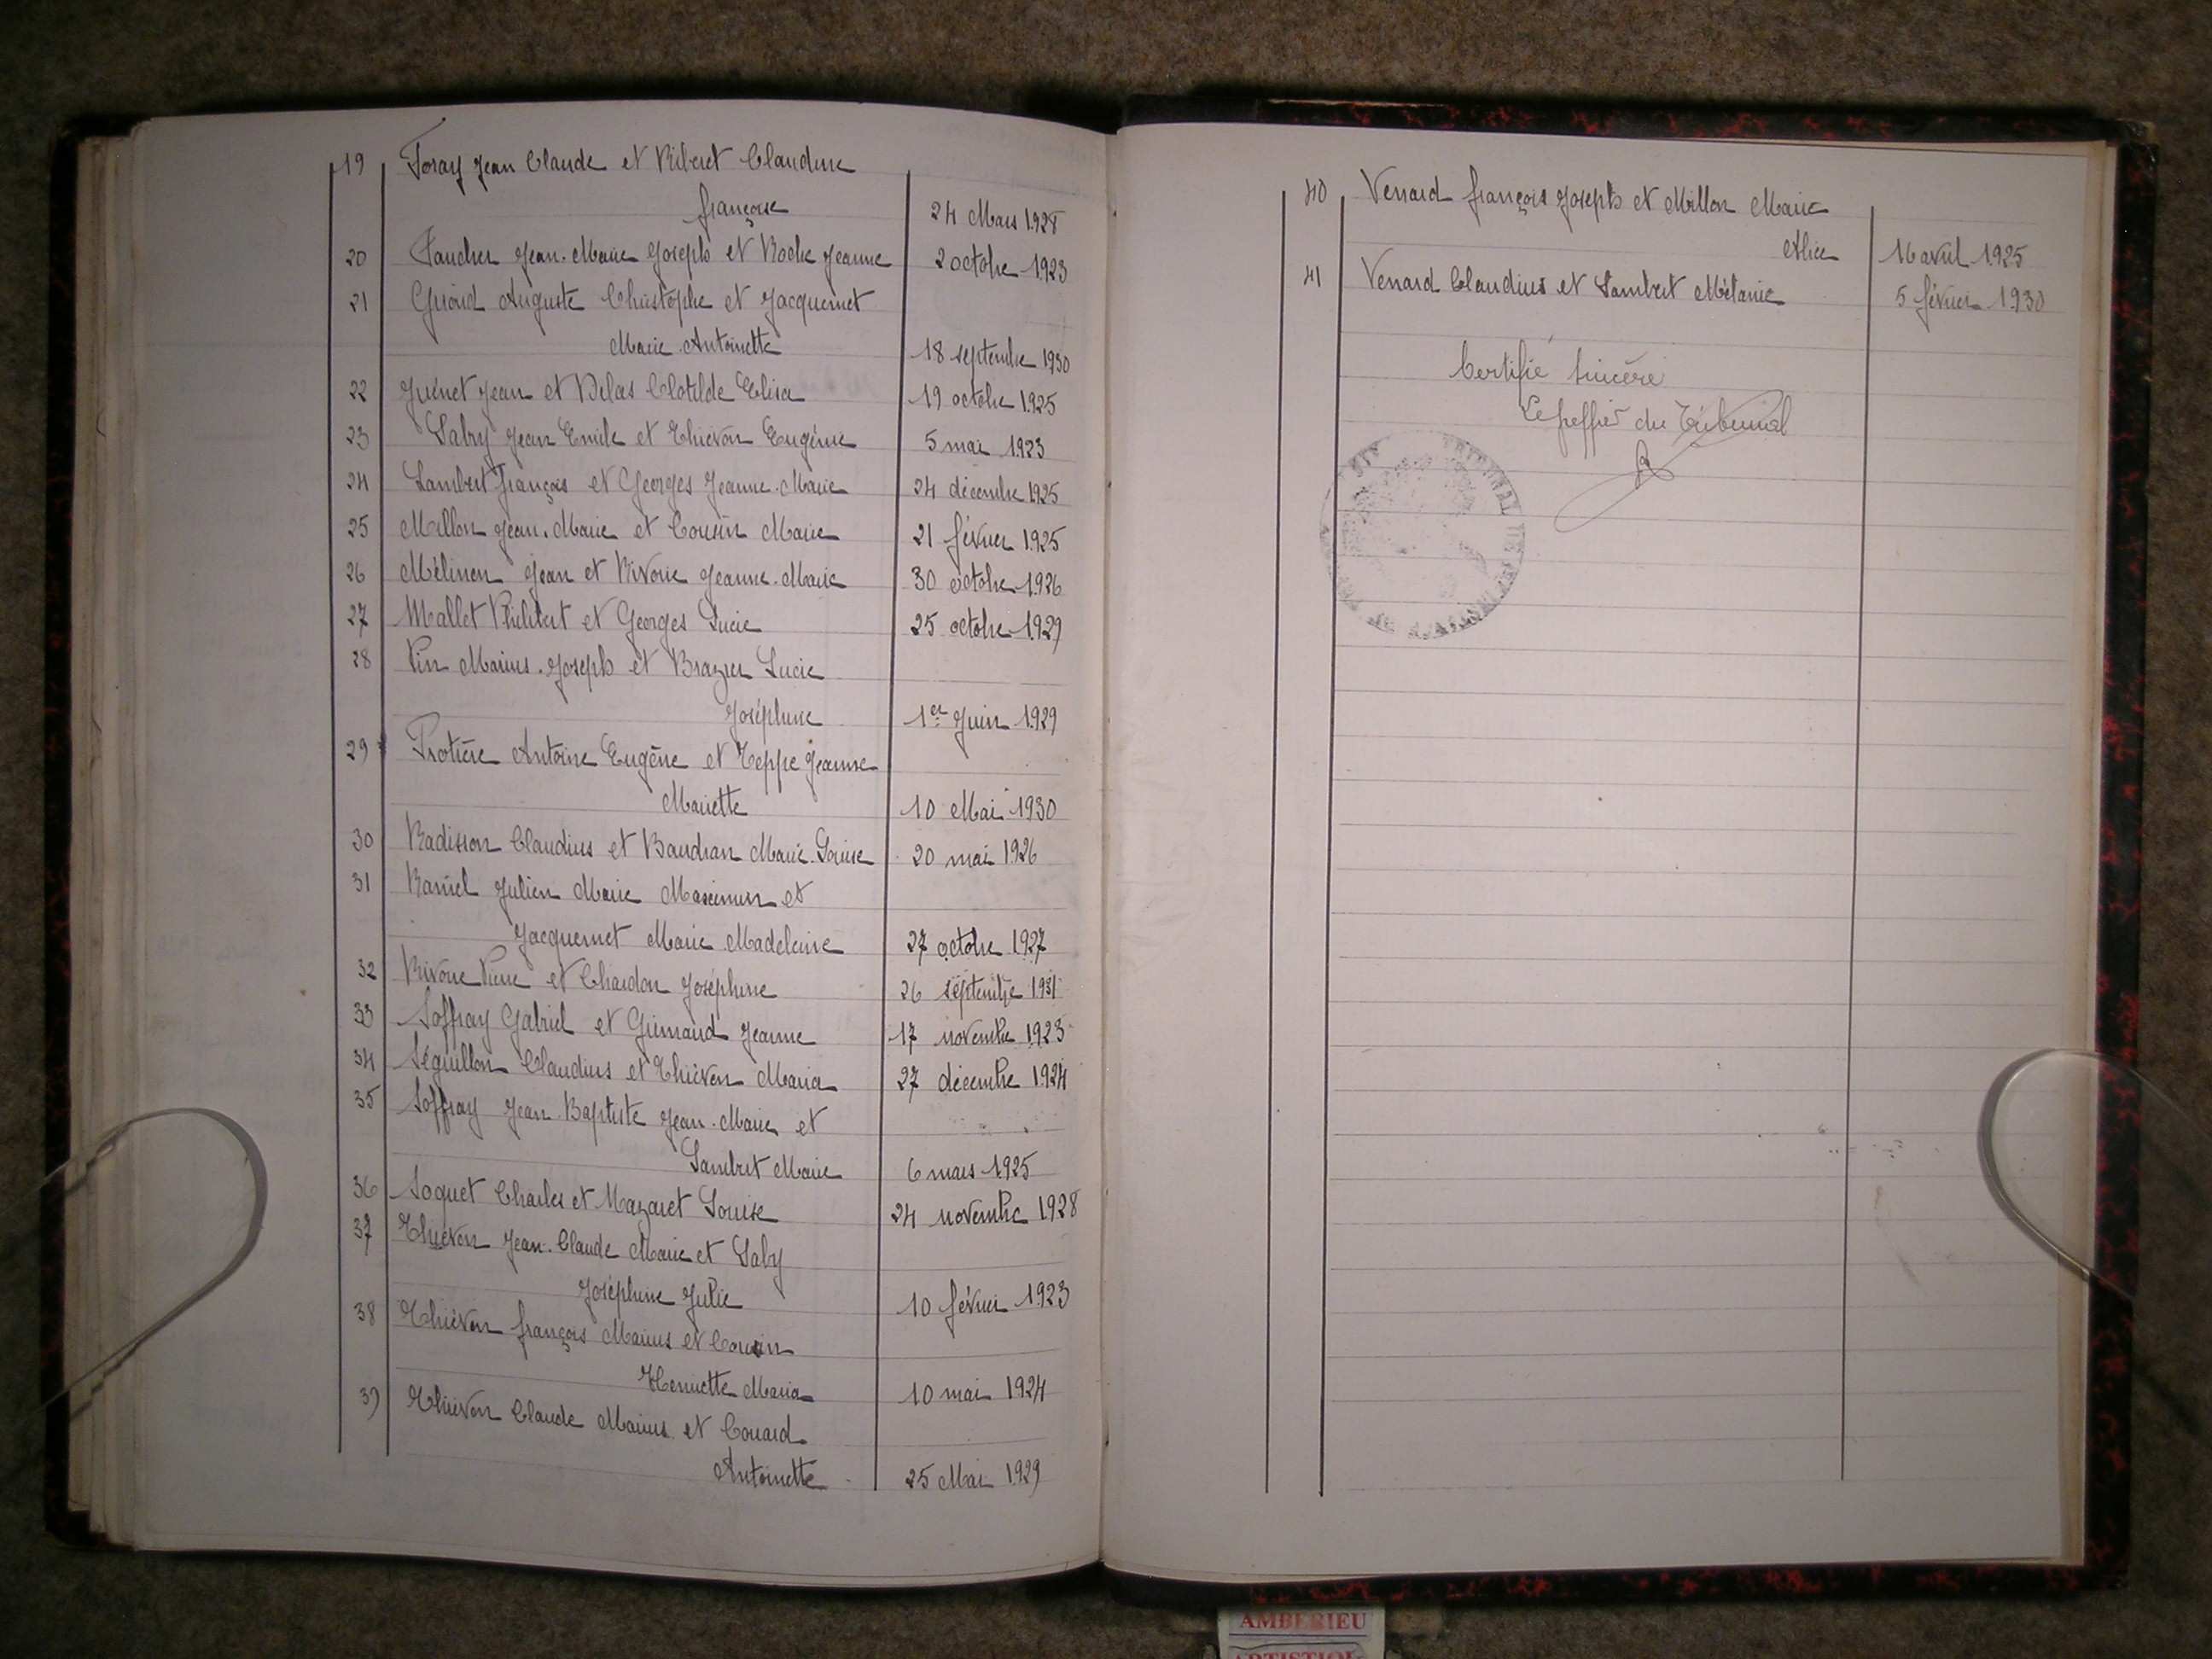 19 Foray Jean Claude et Ribert Claudine
Françoise 24 Mars 1928
20 Faucher Jean-Marie Joseph et Roche Jeanne 2 octobre 1923
21 Guérid Auguste Christophe et Jacquemet
Marie-Antoinette 18 septembre 1930
22 Jean et Clotilde Elisa 19 octobre 1925
23 Laby Jean Emile et Thiévon Eugénie 5 mai 1923
24 Lambert François et Georges Jeanne-Marie 24 décembre 1925
25 Millon Jean-Marie et Cousin Marie 21 février 1925
26 Mélinon Jean et Rivoire Jeanne-Marie 30 octobre 1926
27 Mallet Philibert et Georges Lucie 25 octobre 1929
28 Pin Marius-Joseph et Brazier Lucie
Joséphine 1er Juin 1929
29 Protière Antoine Eugène et Teppe Jeanne
Mariette 10 Mai 1930
30 Radisson Claudius et Baudran Marie-Louise 20 mai 1926
31 Julien Marie Maximin et
Jacquemet Marie Madeleine 27 octobre 1927
32 Rivoire Pierre et Chardon Joséphine 26 septembre 1931
33 Soffray Gabriel et Grimaud Jeanne 17 novembre 1923
34 Séguillon Claudius et Thiévon Maria 27 décembre 1924
35 Soffray Jean-Baptiste Jean-Marie et
Lambert Marie 6 mars 1925
36 Soquet Charles et Mazaret Louise 24 novembre 1928
37 Thiévon Jean-Claude Marie et Laby
Joséphine Julie 10 février 1923
38 Thiévon François Marius et Cousin
Henriette Maria 10 mai 1924
39 Thiévon Claude Marius et Couard
Antoinette 25 Mai 1929
40 Venard François Joseph et Millon Marie
Alice 16 avril 1925
41 Venard Claudius et Lambert Mélanie 5 février 1930
Certifié sincère
Le greffier du Tribunal
TRIBUNAL
AMBERIEU